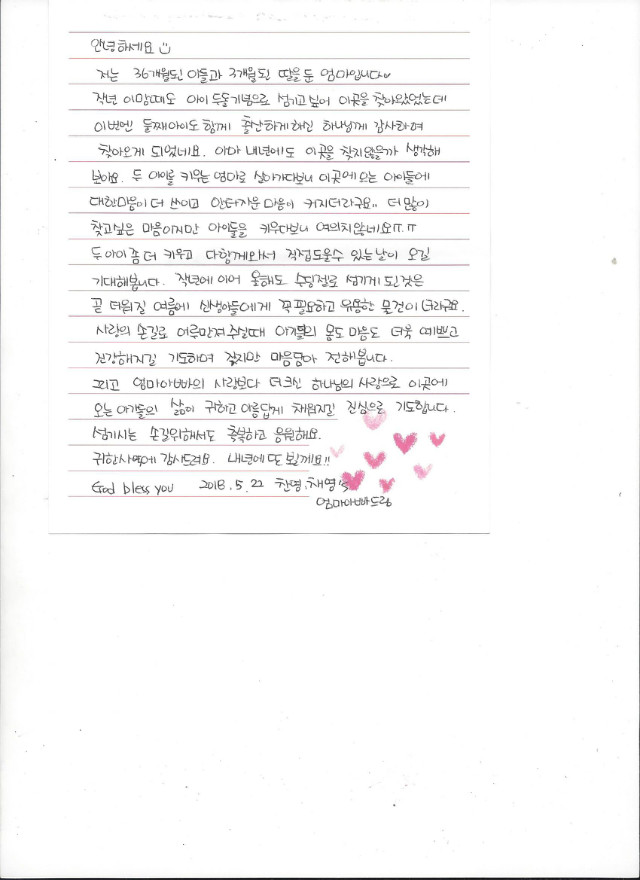 안녕하세요
저는 36개월된 아들과 3개월된 딸을 둔 엄마입니다
작년 이맘때도 아이 두돌기념으로 섬기고 싶어 이곳을 찾아왔었는데
이번엔 둘째아이도 함께 출산하게해주신 하나님께 감사하며
찾아오게 되었네요. 아마 내년에도 이곳을 찾지않을까 생각해
보아요. 두 아이를 키우는 엄마로 살아가다보니 이곳에 오는 아이들에
대한마음이 더 쓰이고 안타까운 마음이 커지더라구요.. 더 많이
찾고싶은 마음이지만 아이들을 키우다보니 여의치않네요ㅠㅠ
두 아이 좀 더 키우고 다함께와서 직접도울수 있는 날이 오길
기대해봅니다. 작년에 이어 올해도 수딩젤로 섬기게 된것은
곧 더워질 여름에 신생아들에게 꼭 필요하고 유용한 물건이더라구요.
사랑의 손길로 어루만져주실때 아기들의 몸도 마음도 더욱 예쁘고
건강해지길 기도하며 작지만 마음담아 전해봅니다.
그리고 엄마아빠의 사랑보다 더크신 하나님의 사랑으로 이곳에
오는 아기들의 삶이 귀하고 아름답게 채워지길 진심으로 기도합니다.
섬기시는 손길위해서도 축복하고 응원해요.
귀한사역에 감사드려요. 내년에 또 뵐게요!!
God bless you 2018.5.22 찬영,채영's
엄마아빠드림